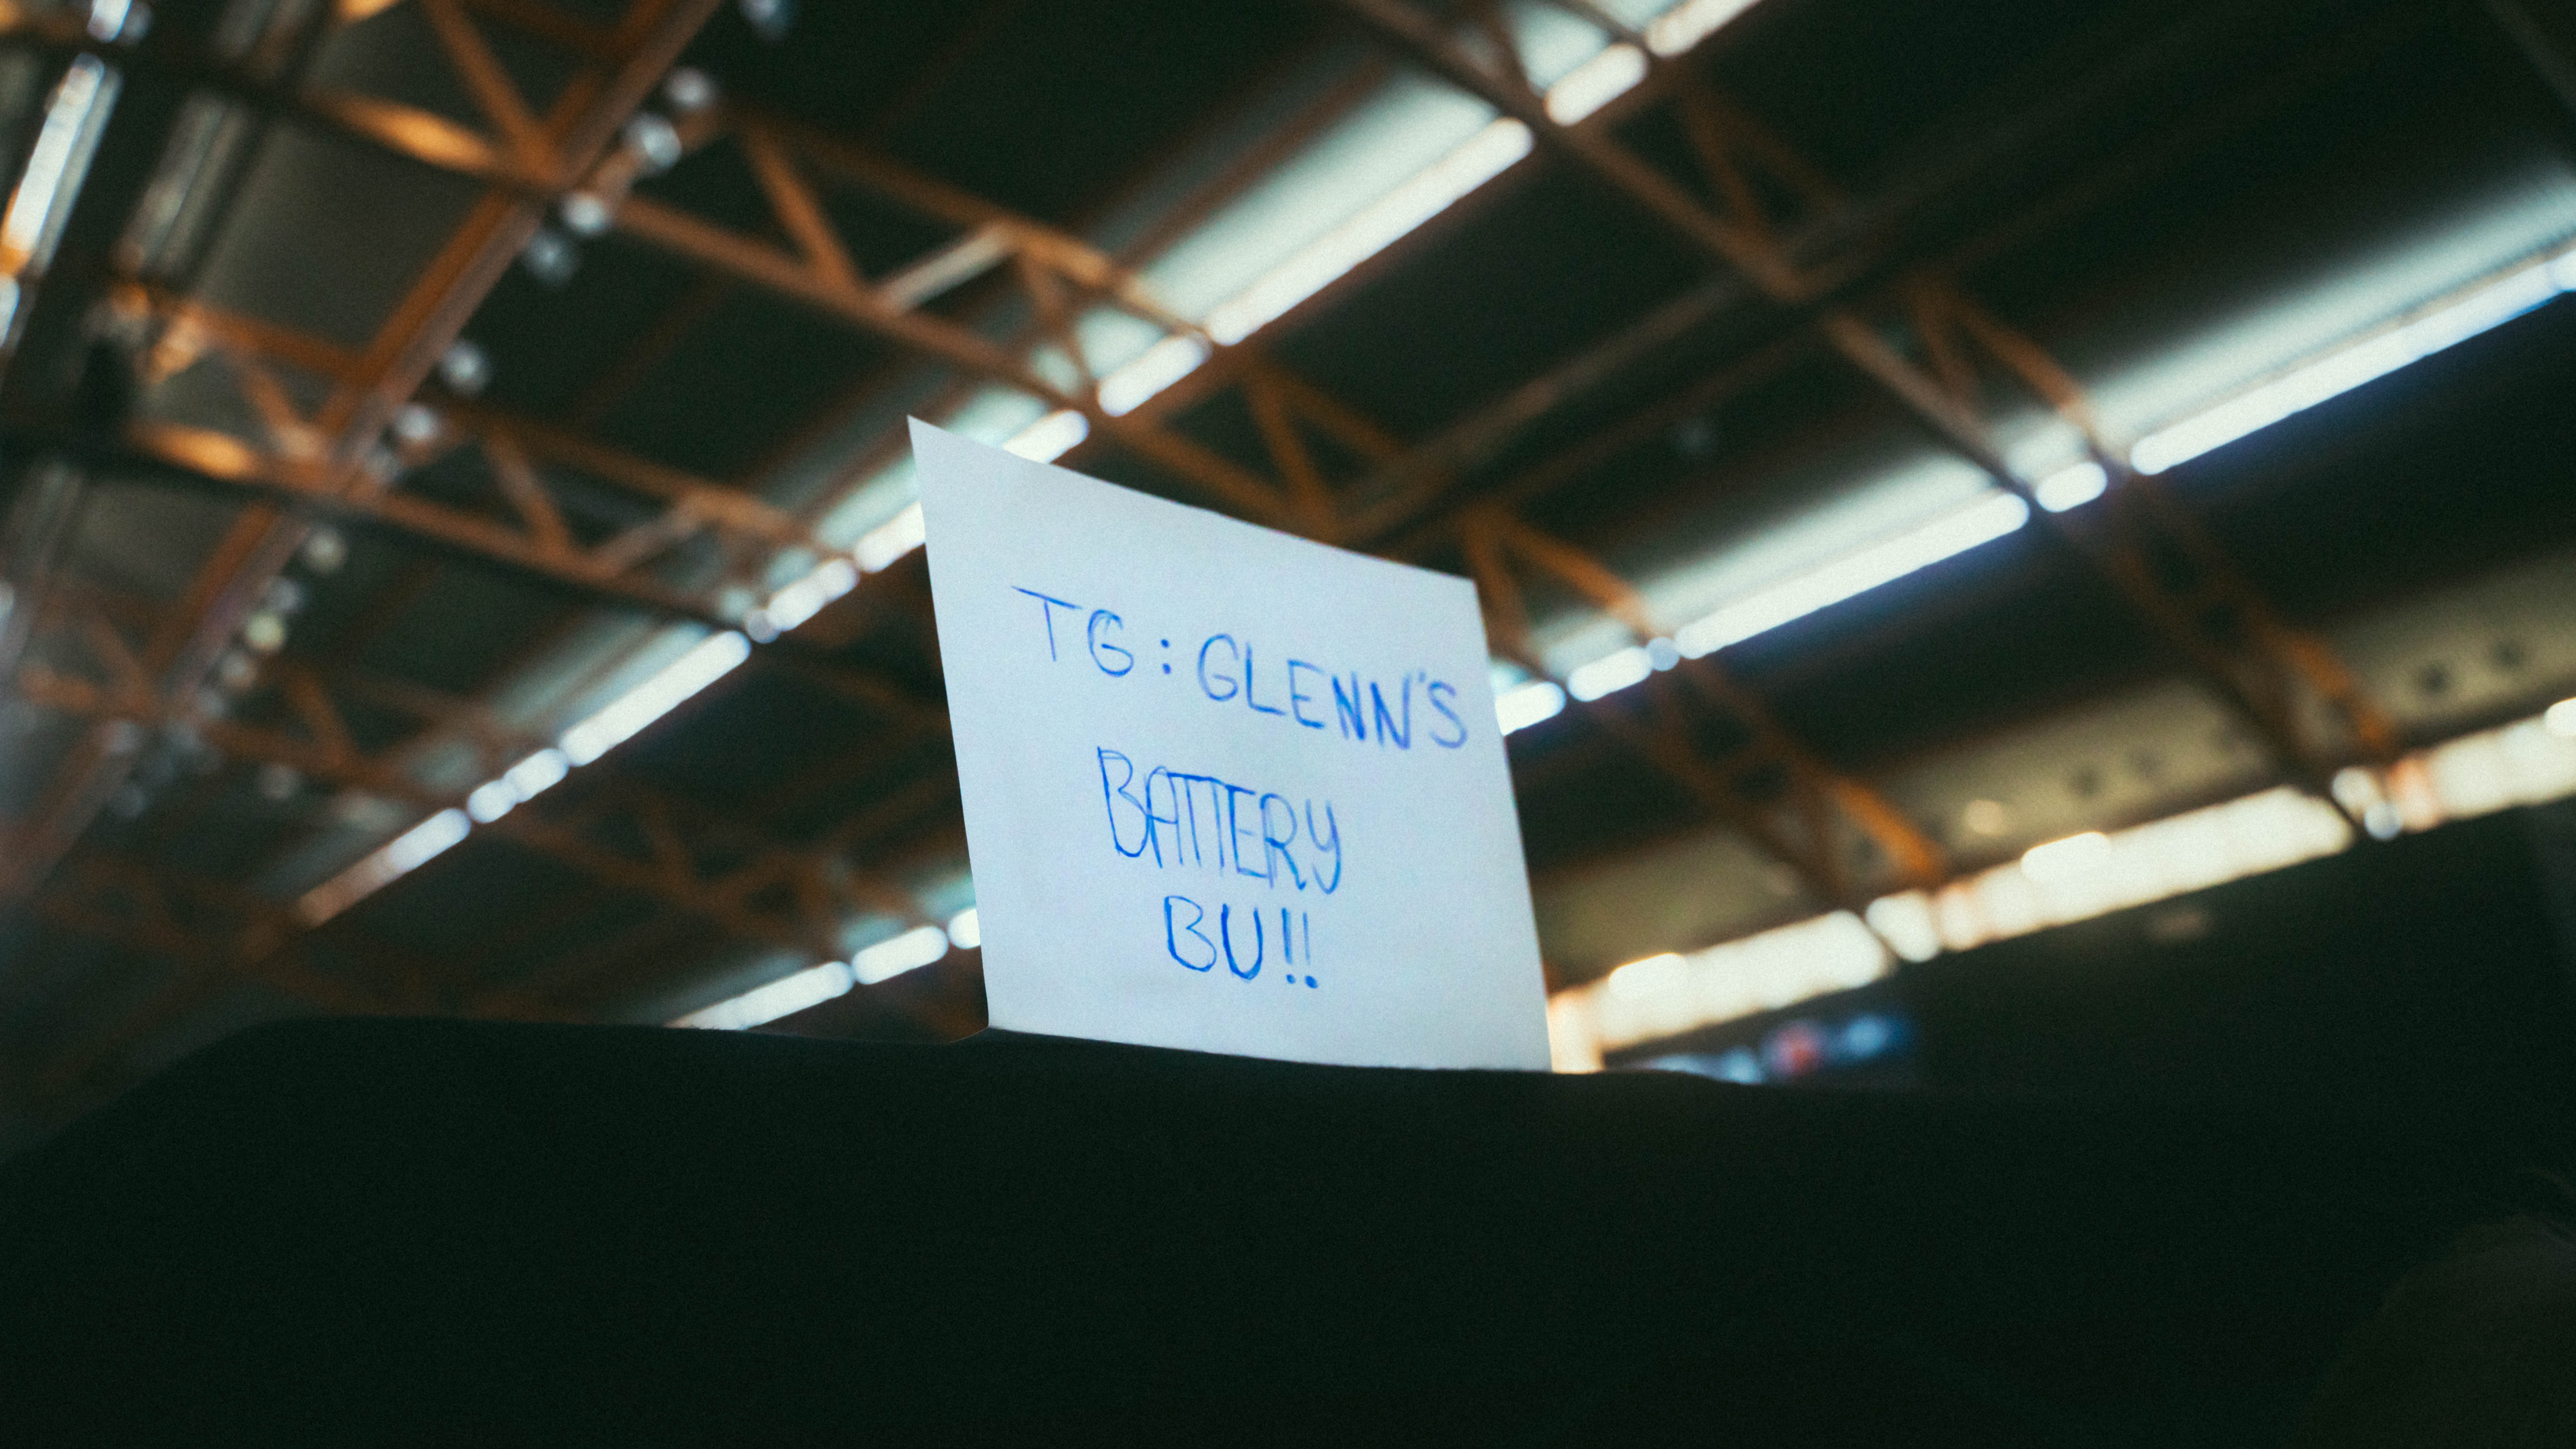 TG: GLENN'S
BATTERY
BU!!